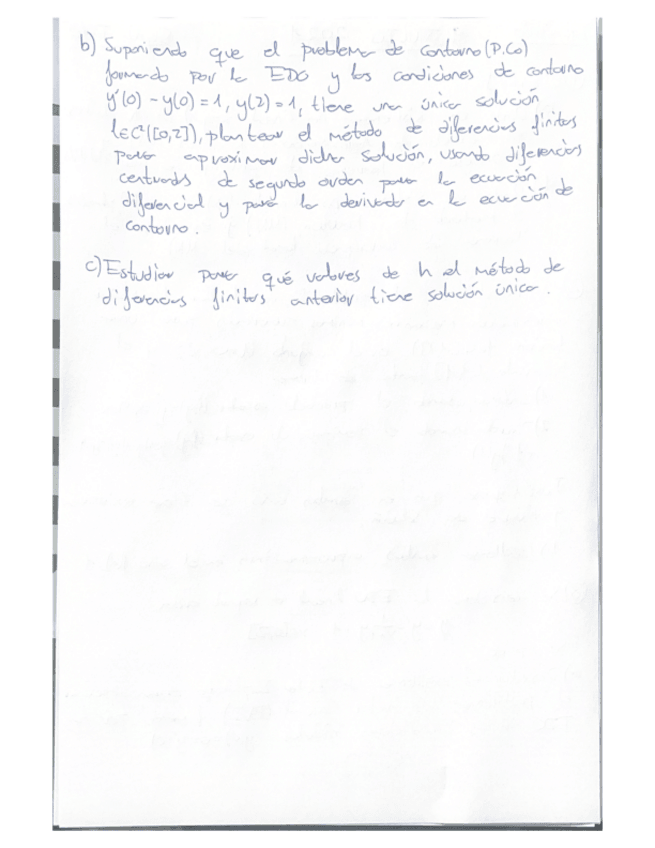 b) Suponiendo que el problema de contorno (P.Co)
formado por la EDO y las condiciones de contorno
y'(0) - y(0) = 1, y(2) = 1, tiene una única solución
l∈C²([0,2]), plantear el método de diferencias finitas
para aproximar dicha solución, usando diferencias
centradas de segundo orden para la ecuación
diferencial y para la derivada en la ecuación de
contorno.
c) Estudiar para qué valores de h el método de
diferencias finitas anterior tiene solución única.